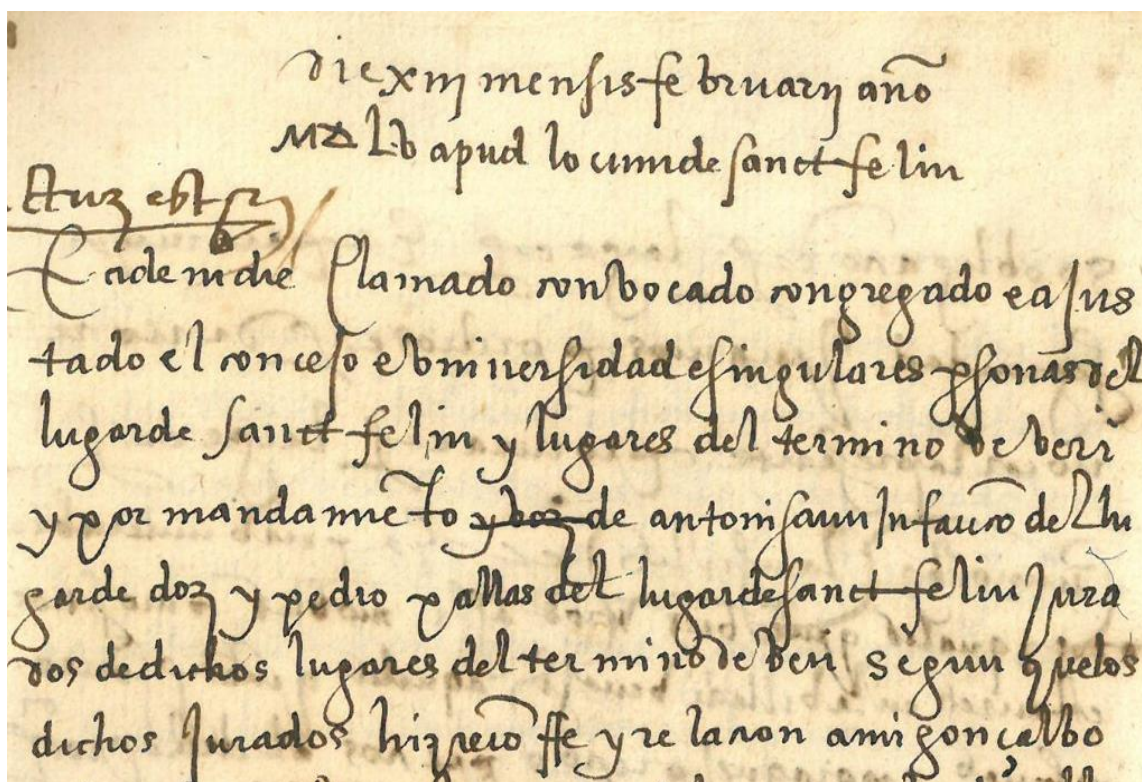 die xiij mensis februarij año
MDLb apud locum de sanct feliu
est
Eadem die llamado conbocado congregado e ajus
tado el conceso e bniuersidad e singulares psonas del
lugar de sanct feliu y lugares del termino de beri
y por mandamieto y boz de antoni sauu Infaço del lu
gar de doz y pedro pallas del lugar de sanct feliu Jura
dos de dichos lugares del termino de beri segun que los
dichos Jurados hizieō ffe y relacion a mi gonçalbo